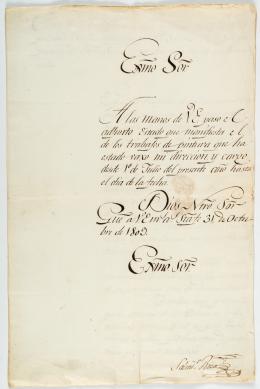 Exmo Sor
A las manos de V.E. paso el
adjunto Estado que manifiesta el
de los trabajos de pintura que ha
estado vaxo mi direccion y cargo,
desde 1º de Julio del presente año hasta
el dia de la fecha.
Dios Nrô Sor
Gue a V.E. ms as 31 de Octu-
bre de 1803.
Exmo Sor